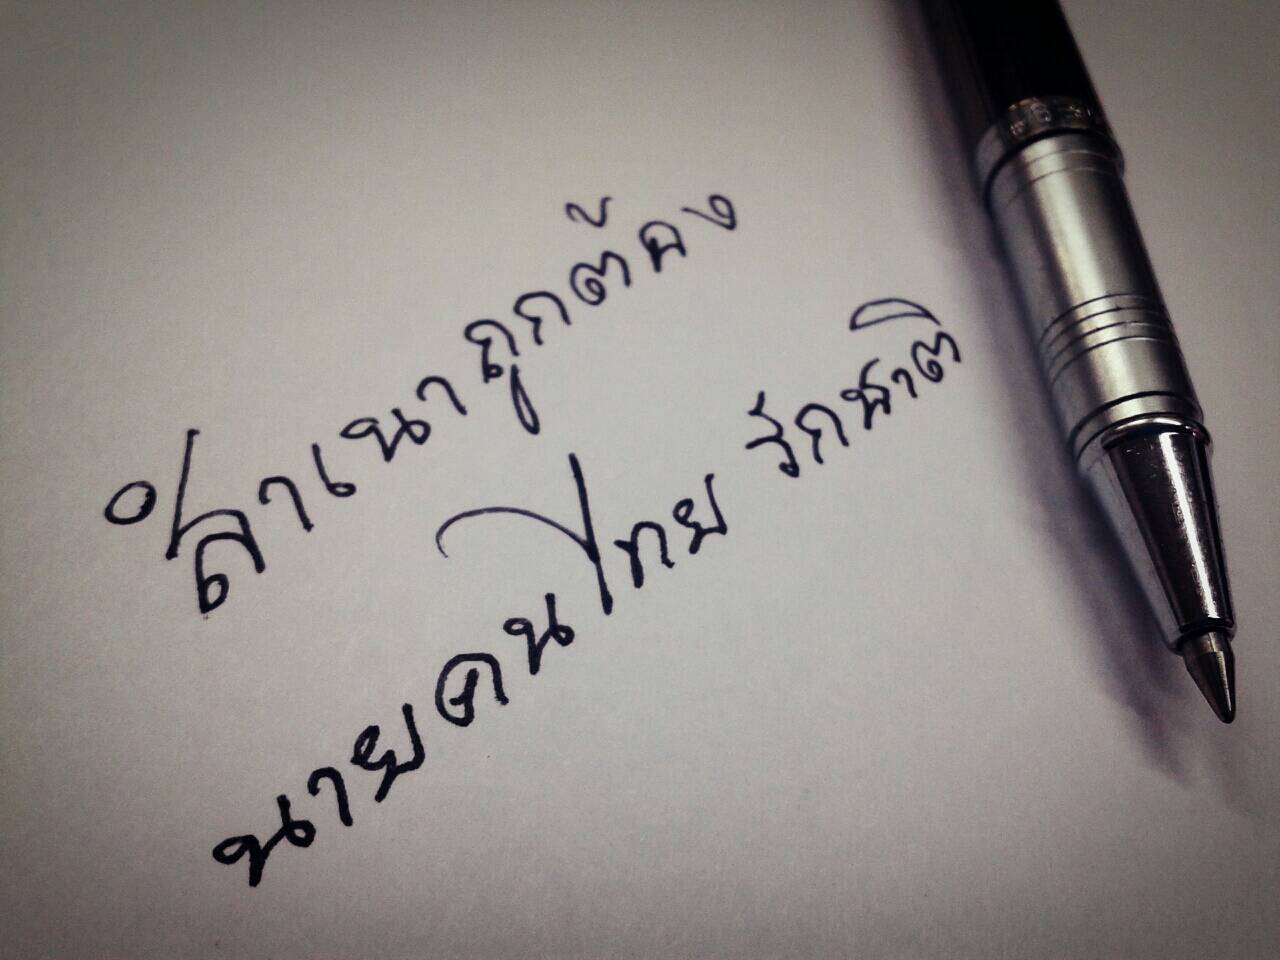 สำเนาถูกต้อง
นายคนไทย รักชาติ